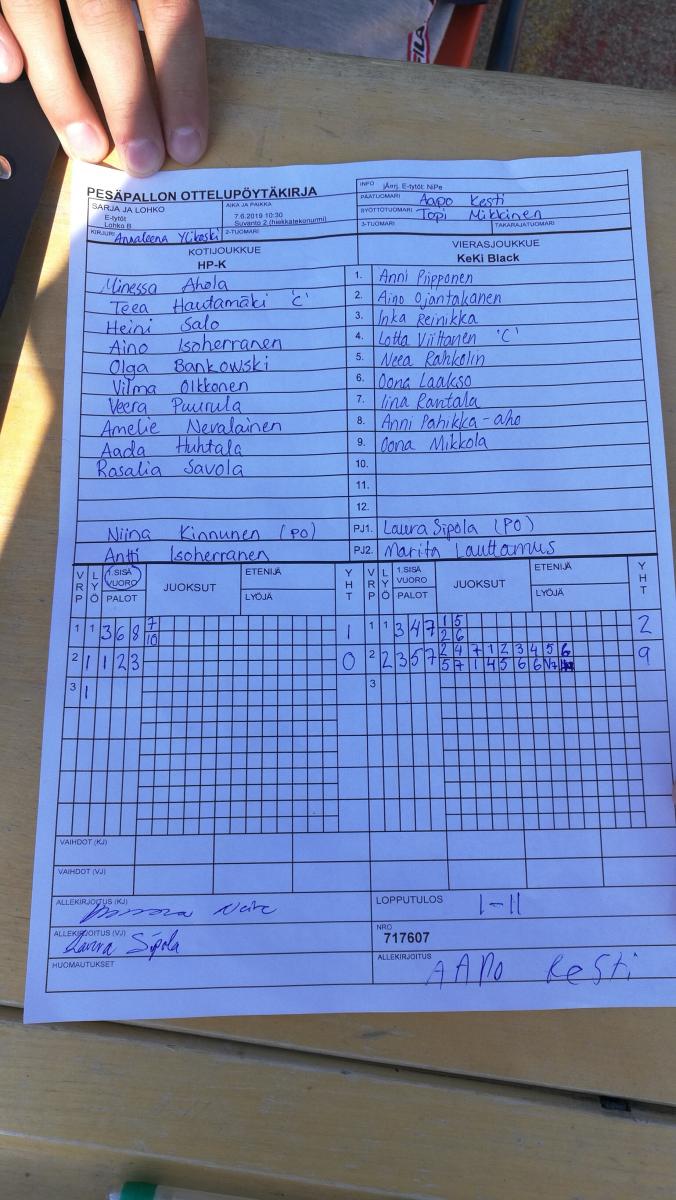 FILA
PESÄPALLON OTTELUPÖYTÄKIRJA
INFO jÄrrj. E-tytöt: NiPe
SARJA JA LOHKO
E-tytöt
Lohko B
AIKA JA PAIKKA
7.6.2019 10:30
Suvanto 2 (hiekkatekonurmi)
PÄÄTUOMARI Aapo Kesti
SYÖTTÖTUOMARI Topi Mikkinen
KIRJURI Annaleena Ylikoski 2-TUOMARI
3-TUOMARI TAKARAJATUOMARI
KOTIJOUKKUE
HP-K
VIERASJOUKKUE
KeKi Black
Minessa Ahola 1. Anni Piipponen
Teea Hautamäki 'C' 2. Aino Ojantakanen
Heini Salo 3. Inka Reinikka
Aino Isoherranen 4. Lotta Viittanen 'C'
Olga Bankowski 5. Neea Rahkolin
Vilma Olkkonen 6. Oona Laakso
Veera Puurula 7. Iina Rantala
Amelie Nevalainen 8. Anni Pahikka-aho
Aada Huhtala 9. Oona Mikkola
Rosalia Savola 10.
11.
12.
Niina Kinnunen (PO) PJ1. Laura Sipola (PO)
Antti Isoherranen PJ2. Marita Lauttamus
VRP LYÖ 1.SISÄ VUORO PALOT JUOKSUT ETENIJÄ LYÖJÄ YHT VRP LYÖ 1.SISÄ VUORO PALOT JUOKSUT ETENIJÄ LYÖJÄ YHT
1 1 3 6 8 7 1 1 1 3 4 7 1 5 2
10 2 6
2 1 1 2 3 0 2 2 3 5 7 2 4 7 1 2 3 4 5 6 9
5 7 1 4 5 6 6
3 1 3
VAIHDOT (KJ)
VAIHDOT (VJ)
ALLEKIRJOITUS (KJ)
LOPPUTULOS 1-11
ALLEKIRJOITUS (VJ) Laura Sipola
NRO
717607
HUOMAUTUKSET
ALLEKIRJOITUS AAPO Kesti